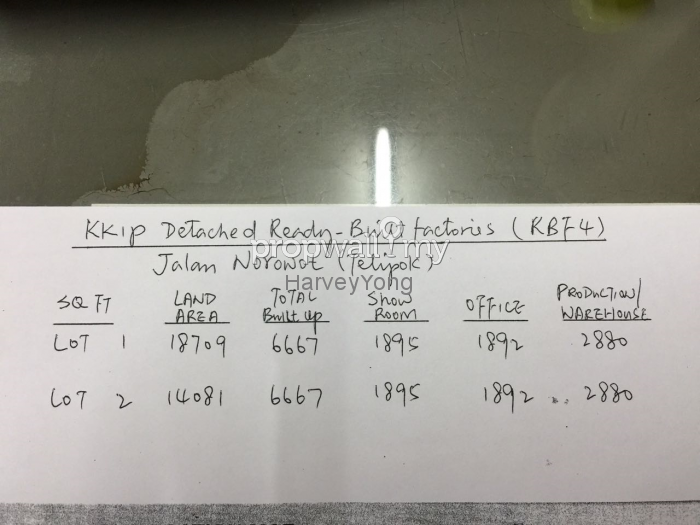 KKIP Detached Ready-Built factories (RBF4)
propwall.my
Jalan Norowot (Telipok)
HarveyYong
SQ FT LAND AREA TOTAL Built up Show ROOM OFFICE PRODUCTION/ WAREHOUSE
LOT 1 18709 6667 1895 1892 2880
LOT 2 14081 6667 1895 1892 .. 2880